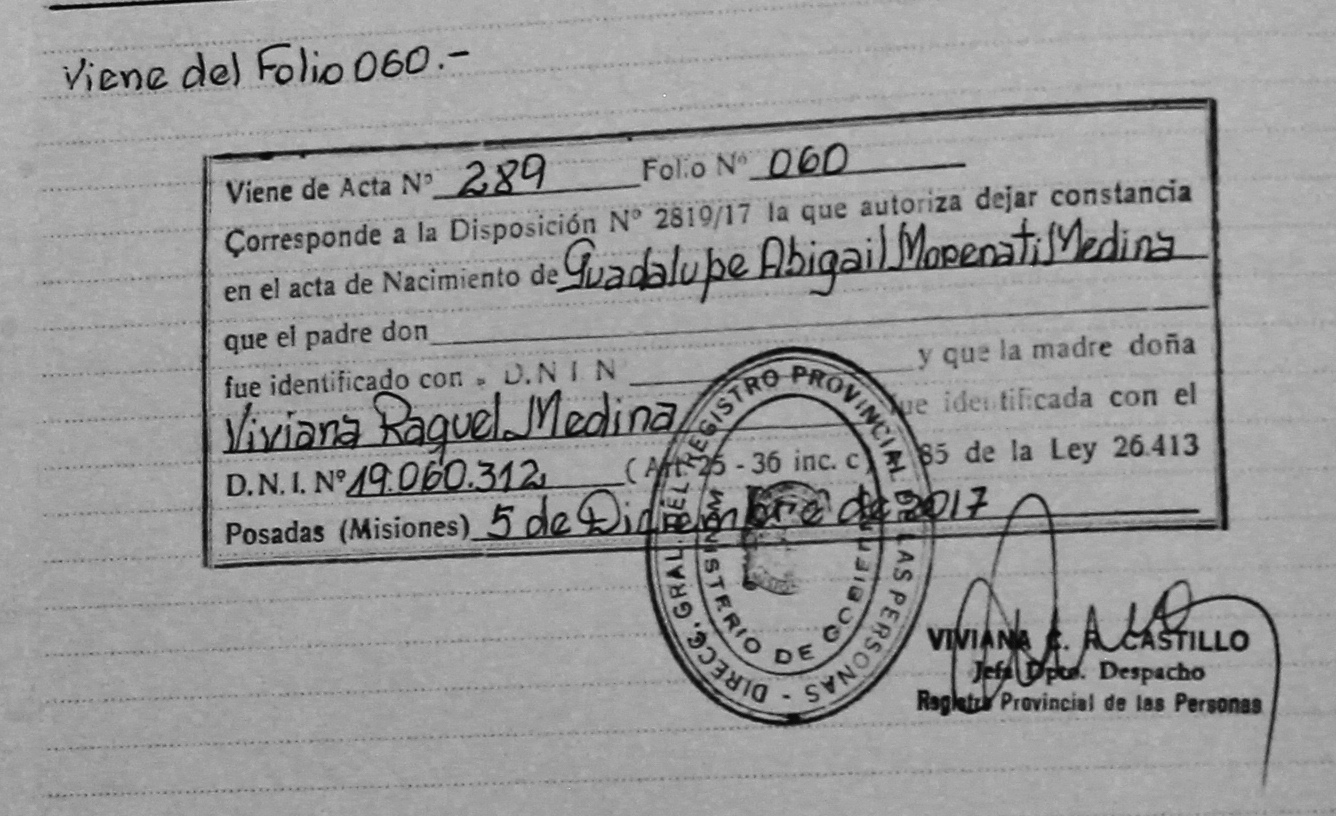 Viene del Folio 060.-
Viene de Acta N° 289 Folio N° 060
Corresponde a la Disposición N° 2819/17 la que autoriza dejar constancia
en el acta de Nacimiento de Guadalupe Abigail Morenati Medina
que el padre don
fue identificado con D.N I N y que la madre doña
Viviana Raquel Medina fue identificada con el
D.N.I. N° 19.060.312 (Art. 25 - 36 inc. c) 85 de la Ley 26.413
Posadas (Misiones) 5 de Diciembre de 2017
DIRECC. GRAL. DEL REGISTRO PROVINCIAL DE LAS PERSONAS -
MINISTERIO DE GOBIERNO
VIVIANA R. CASTILLO
Jefa Dpto. Despacho
Registro Provincial de las Personas